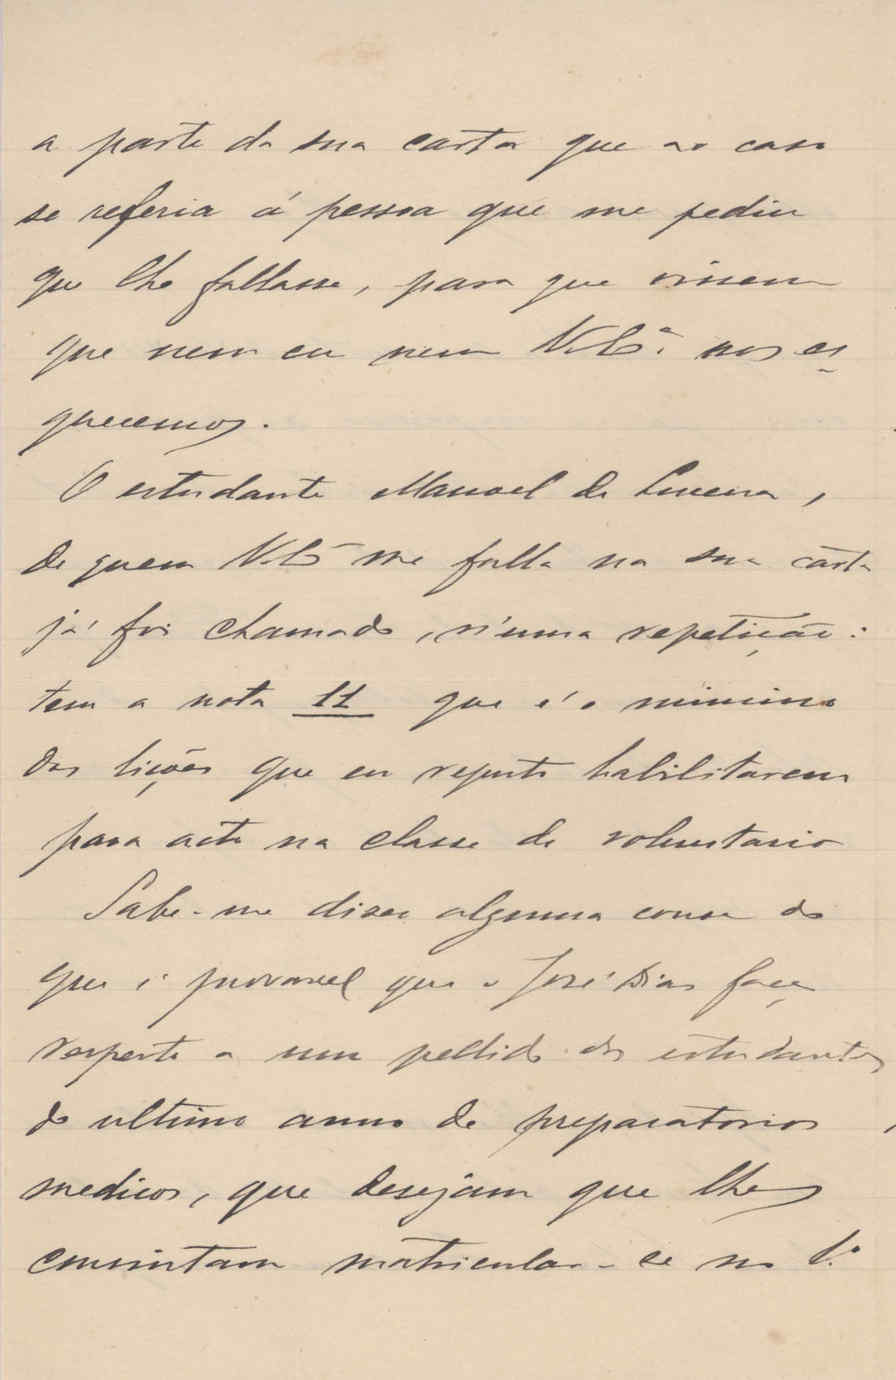 a parte da sua carta que ao caso
se referia á pessoa que me pediu
que lhe fallasse, para que vissem
que nem eu nem V. Ex.ª nos es
quecemos.
O estudante Manoel de Lucena,
de quem V. Ex.ª me falla na sua carta
já foi chamado, n'uma repetição:
tem a nota 11 que é o minimo
das lições que eu reputo habilitarem
para acto na classe de voluntario
Sabe-me dizer alguma cousa do
que é provavel que o José Dias faça
respeito a um pedido dos estudantes
do ultimo anno de preparatorios
medicos, que desejam que lhes
consintam matricular-se no 1.º